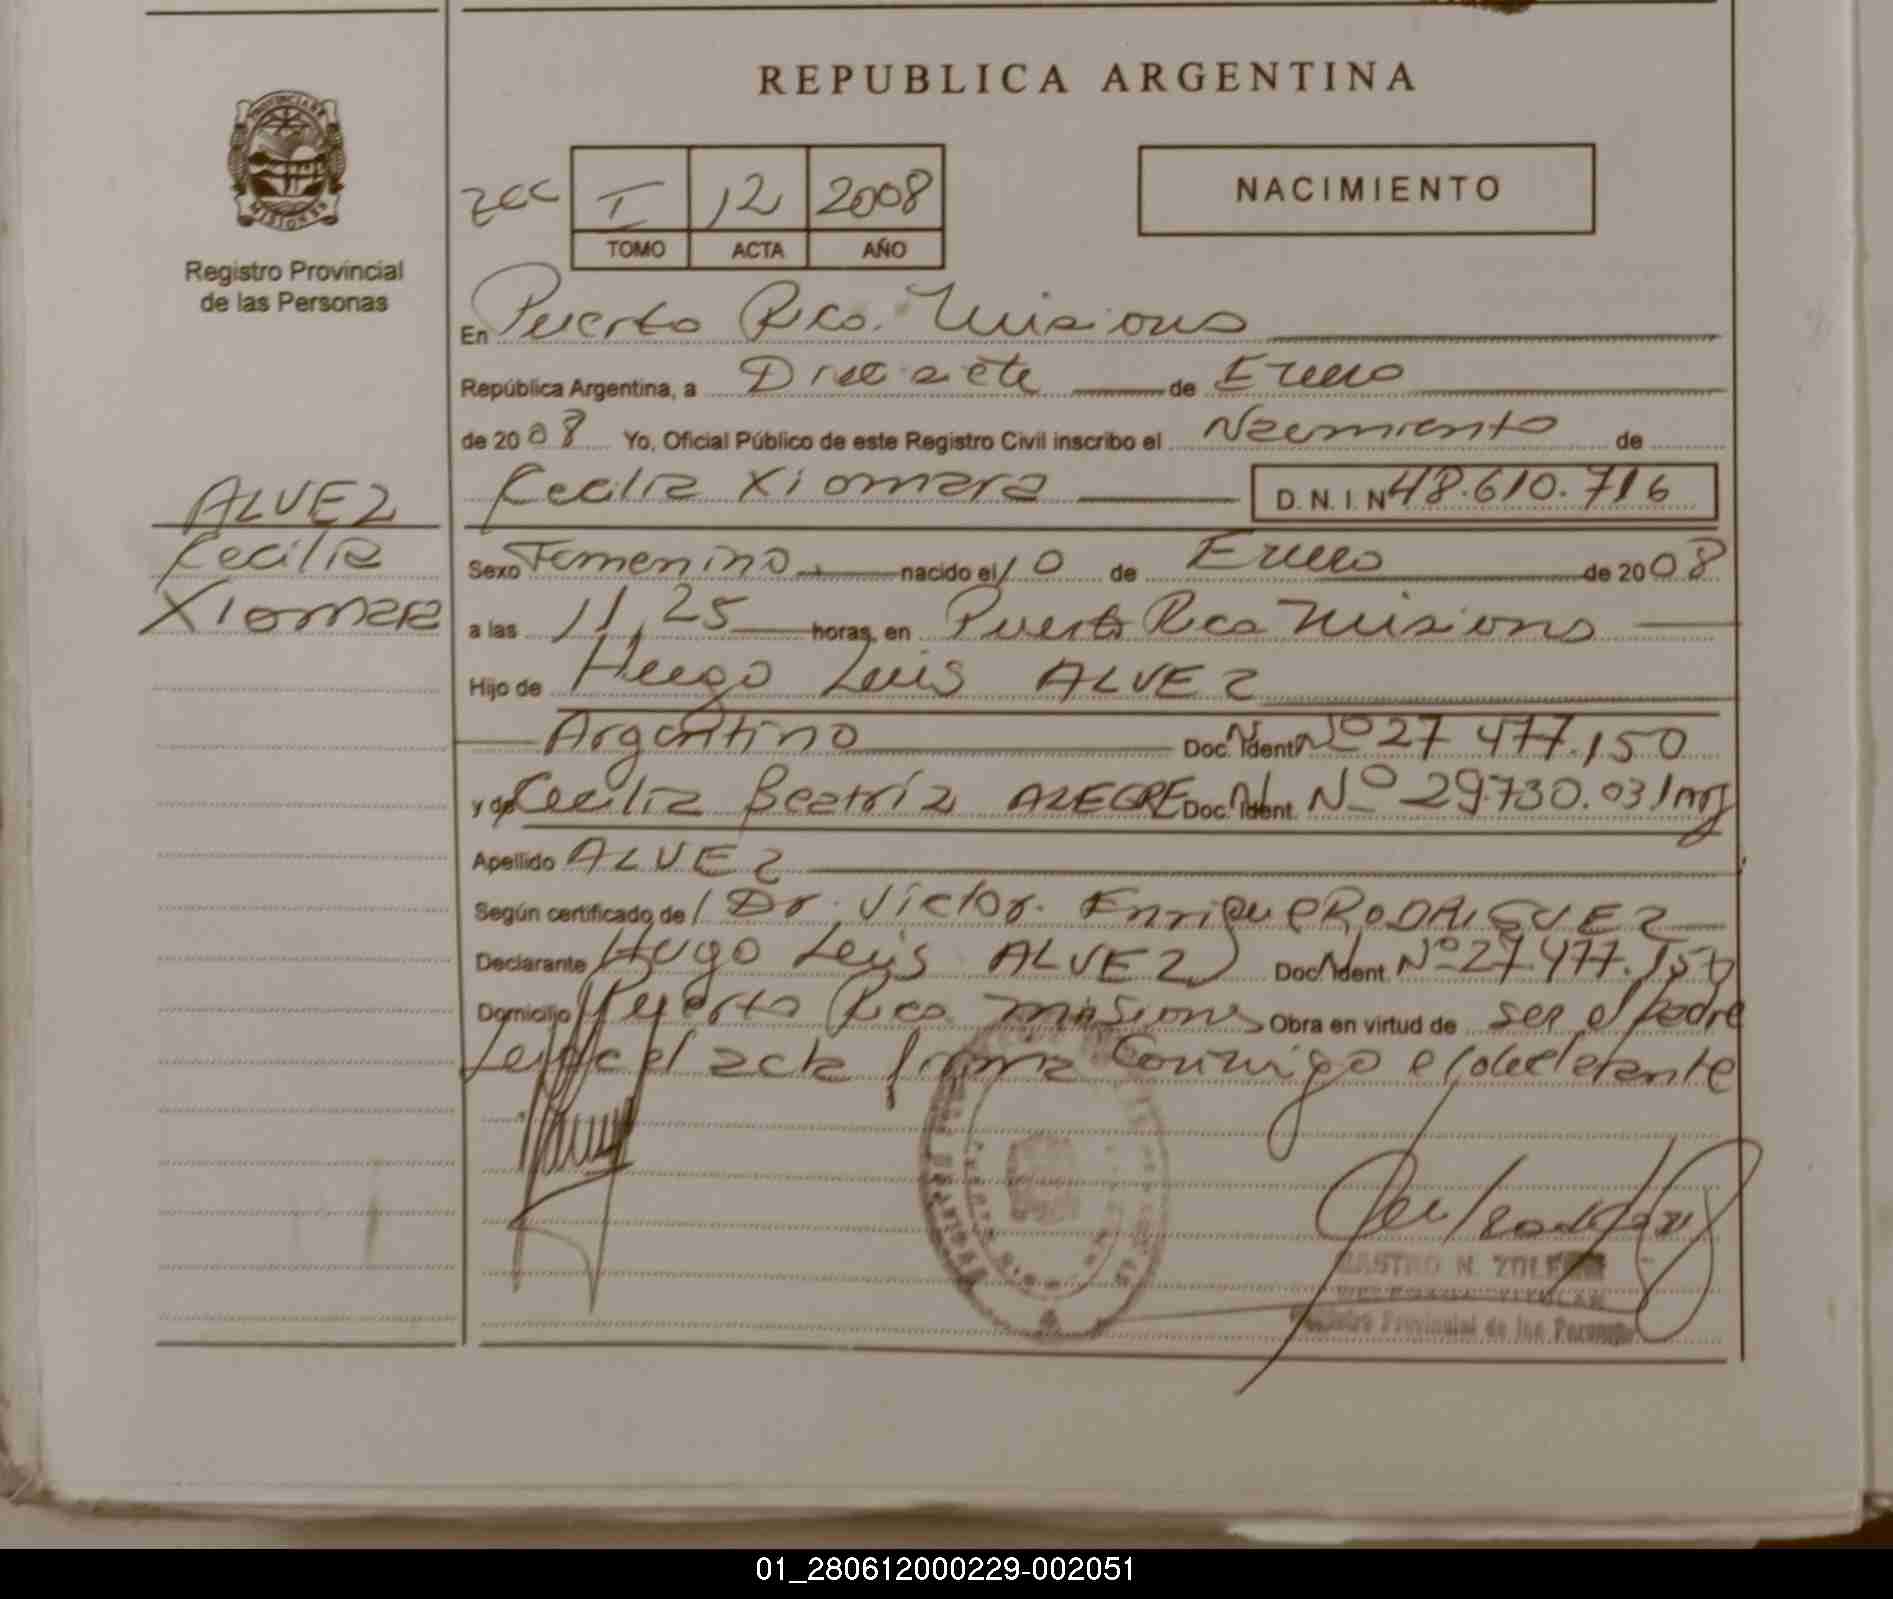 REPUBLICA ARGENTINA
PROVINCIA DE
MISIONES
Registro Provincial
de las Personas
I 12 2008
TOMO ACTA AÑO
NACIMIENTO
En Puerto Rico. Misiones
República Argentina, a Diecisiete de Enero
de 2008 Yo, Oficial Público de este Registro Civil inscribo el Nacimiento de
Cecilia Xiomara D.N.I.Nº 48.610.716
ALVEZ
Cecilia
Xiomara
Sexo Femenino nacido el 10 de Enero de 2008
a las 11,25 horas, en Puerto Rico Misiones
Hijo de Hugo Luis ALVEZ
Argentino Doc. Ident. Nº 27 477.150
y de Cecilia Beatríz ALEGRE Doc. Ident. Nº 29.730.031 arg
Apellido ALVEZ
Según certificado de Dr. Victor. Enrique RODRIGUEZ
Declarante Hugo Luis ALVEZ Doc. Ident. Nº 27.477.150
Domicilio Puerto Rico misiones Obra en virtud de ser el padre
Leída el acta firma Conmigo el declarante
CASTRO N.
DELEGADA TITULAR
Registro Provincial de las Personas
01_280612000229-002051